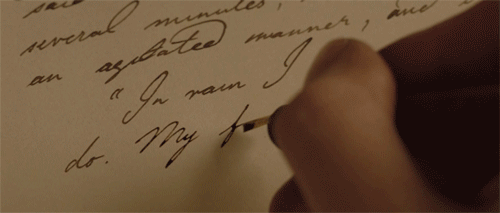 said
several minutes,
an agitated manner, and
"In vain I
do. My f